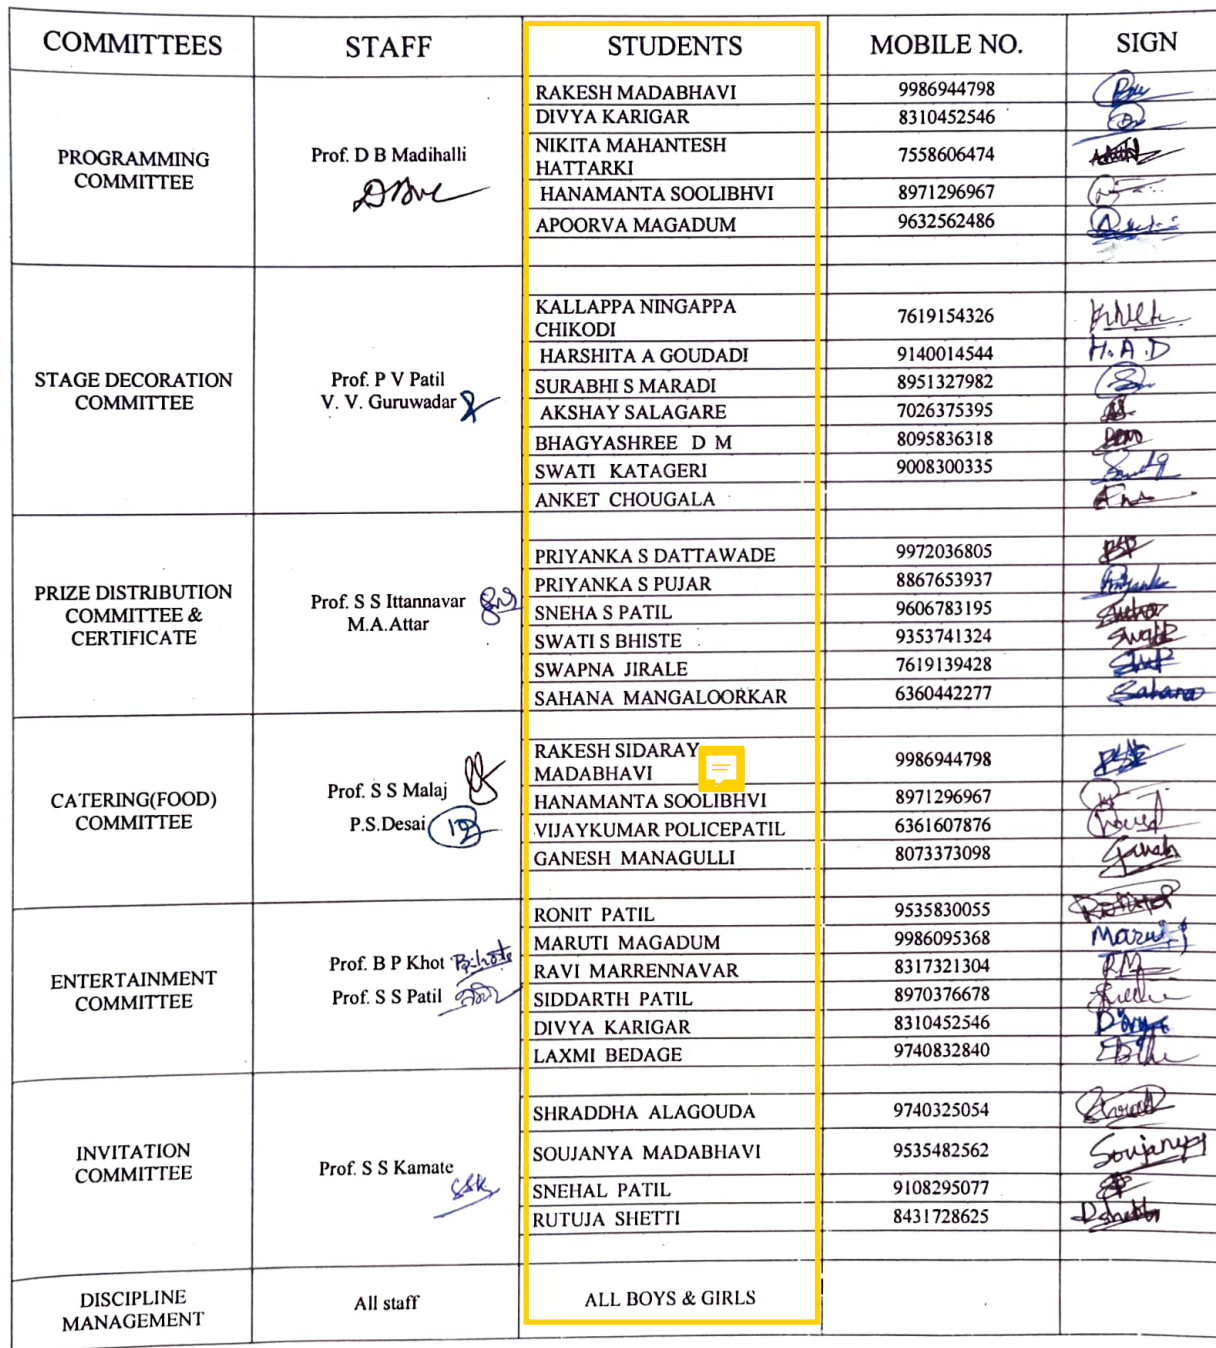 COMMITTEES STAFF STUDENTS MOBILE NO. SIGN
PROGRAMMING
COMMITTEE
Prof. D B Madihalli
RAKESH MADABHAVI 9986944798
DIVYA KARIGAR 8310452546
NIKITA MAHANTESH
HATTARKI 7558606474
HANAMANTA SOOLIBHVI 8971296967
APOORVA MAGADUM 9632562486
STAGE DECORATION
COMMITTEE
Prof. P V Patil
V. V. Guruwadar
KALLAPPA NINGAPPA
CHIKODI 7619154326
HARSHITA A GOUDADI 9140014544 H.A.D
SURABHI S MARADI 8951327982
AKSHAY SALAGARE 7026375395
BHAGYASHREE D M 8095836318
SWATI KATAGERI 9008300335
ANKET CHOUGALA
PRIZE DISTRIBUTION
COMMITTEE &
CERTIFICATE
Prof. S S Ittannavar
M.A.Attar
PRIYANKA S DATTAWADE 9972036805
PRIYANKA S PUJAR 8867653937 Priyanka
SNEHA S PATIL 9606783195
SWATI S BHISTE 9353741324
SWAPNA JIRALE 7619139428
SAHANA MANGALOORKAR 6360442277 Sahana
CATERING(FOOD)
COMMITTEE
Prof. S S Malaj
P.S.Desai
RAKESH SIDARAY
MADABHAVI 9986944798
HANAMANTA SOOLIBHVI 8971296967
VIJAYKUMAR POLICEPATIL 6361607876
GANESH MANAGULLI 8073373098
ENTERTAINMENT
COMMITTEE
Prof. B P Khot
Prof. S S Patil
RONIT PATIL 9535830055
MARUTI MAGADUM 9986095368
RAVI MARRENNAVAR 8317321304 RM
SIDDARTH PATIL 8970376678
DIVYA KARIGAR 8310452546 Divya
LAXMI BEDAGE 9740832840
INVITATION
COMMITTEE
Prof. S S Kamate
SSK
SHRADDHA ALAGOUDA 9740325054
SOUJANYA MADABHAVI 9535482562 Soujanya
SNEHAL PATIL 9108295077
RUTUJA SHETTI 8431728625
DISCIPLINE
MANAGEMENT
All staff
ALL BOYS & GIRLS